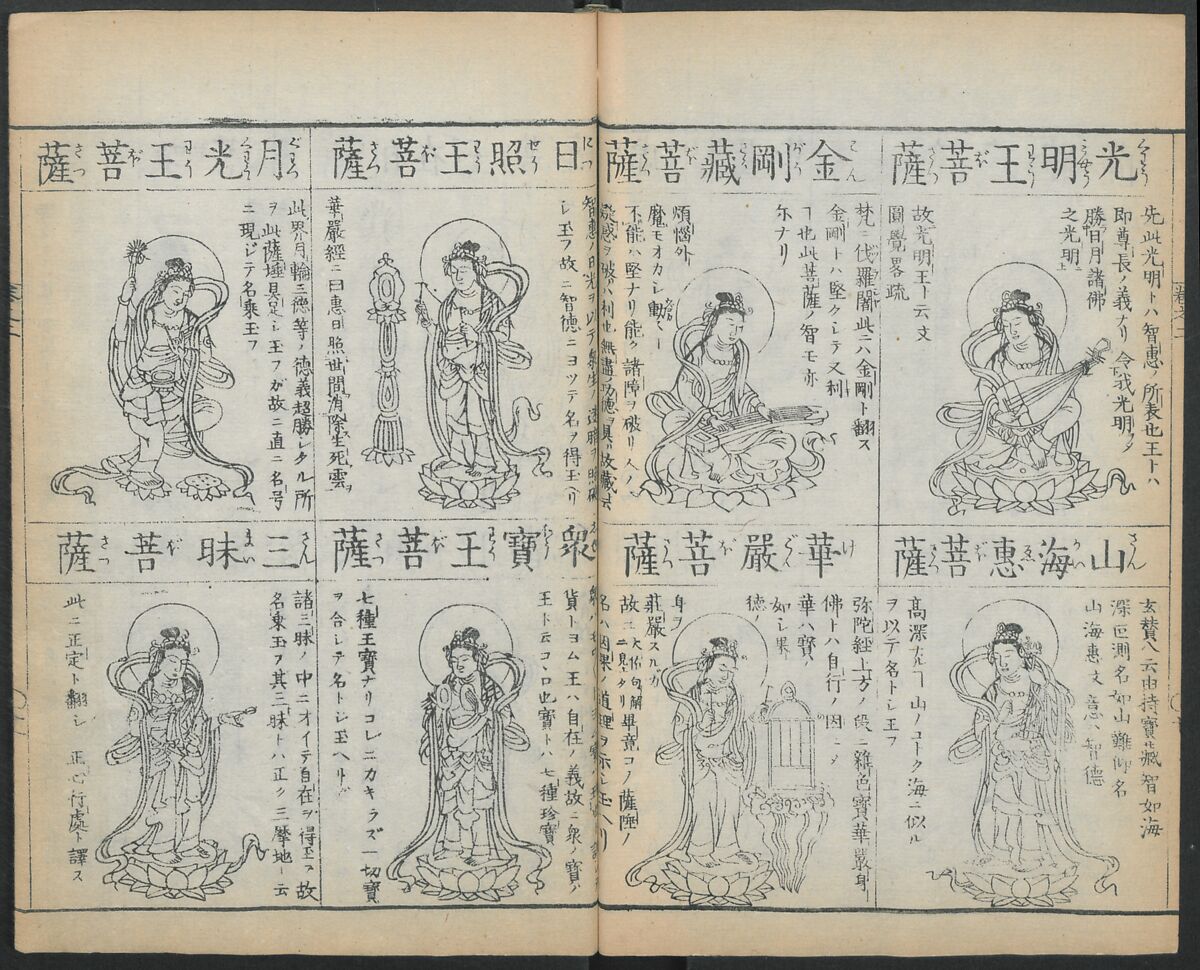 光明王菩薩
先此光明トハ智惠ノ所表也王トハ
即尊長ノ義ナリ 令我光明
勝日月諸佛
之光明
故光明王ト云文
圓覺畧疏
金剛藏菩薩
梵ニ伐羅闍此ニハ金剛ト翻ス
金剛トハ堅クシテ又利
ヿ也此菩薩ノ智モ亦
尓ナリ
煩惱外
魔モオカシ動
不能ハ堅ナリ能ク諸障ヲ破リ人ノ
日照王菩薩
智惠ノ日光ヲ以テ
シ玉フ故ニ智德ニヨツテ名ヲ得玉ヘリ
華嚴經ニ曰惠日照世間消除生死雲
月光王菩薩
此界月輪三德等ノ德義超勝レタル所
ヲ此薩埵具足シ玉フガ故ニ直ニ名号
ニ現ジテ名乘玉フ
山海惠菩薩
玄賛八云由持寶藏智如海
深叵測名如山難仰名
山海惠文 意ハ智德
高深ナルヿ山ノコトク海ニ似ル
ヲ以テ名トシ王フ
華嚴菩薩
弥陀經上方ノ段ニ雜色寶華嚴身
佛トハ自行ノ因ニメ
華ハ寶ノ
如シ果
德ノ
身ヲ
莊嚴スルガ
故ニ 大佑句解ニ見タリ 畢竟コノ薩埵ノ
名ハ因果ノ道理ヲ示シ玉ヘリ
衆寶王菩薩
貨トヨム王ハ自在ノ義故ニ衆ノ寶ノ
王ト云コヽロ也寶トハ七種珍寶
七種王寶ナリコレニカキラズ一切寶
ヲ合シテ名トシ玉ヘリ
三昧菩薩
諸三昧ノ中ニオイテ自在ヲ得玉フ故
名乘玉フ其三昧トハ正ク三摩地ト云
此ニ正定ト翻シ 正心行處ト譯ス